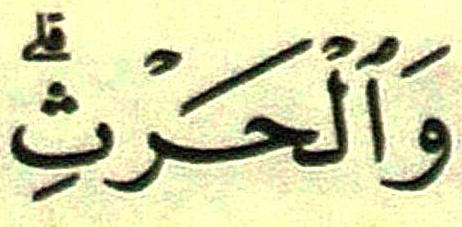 وَٱلْحَرْثِ ۗ